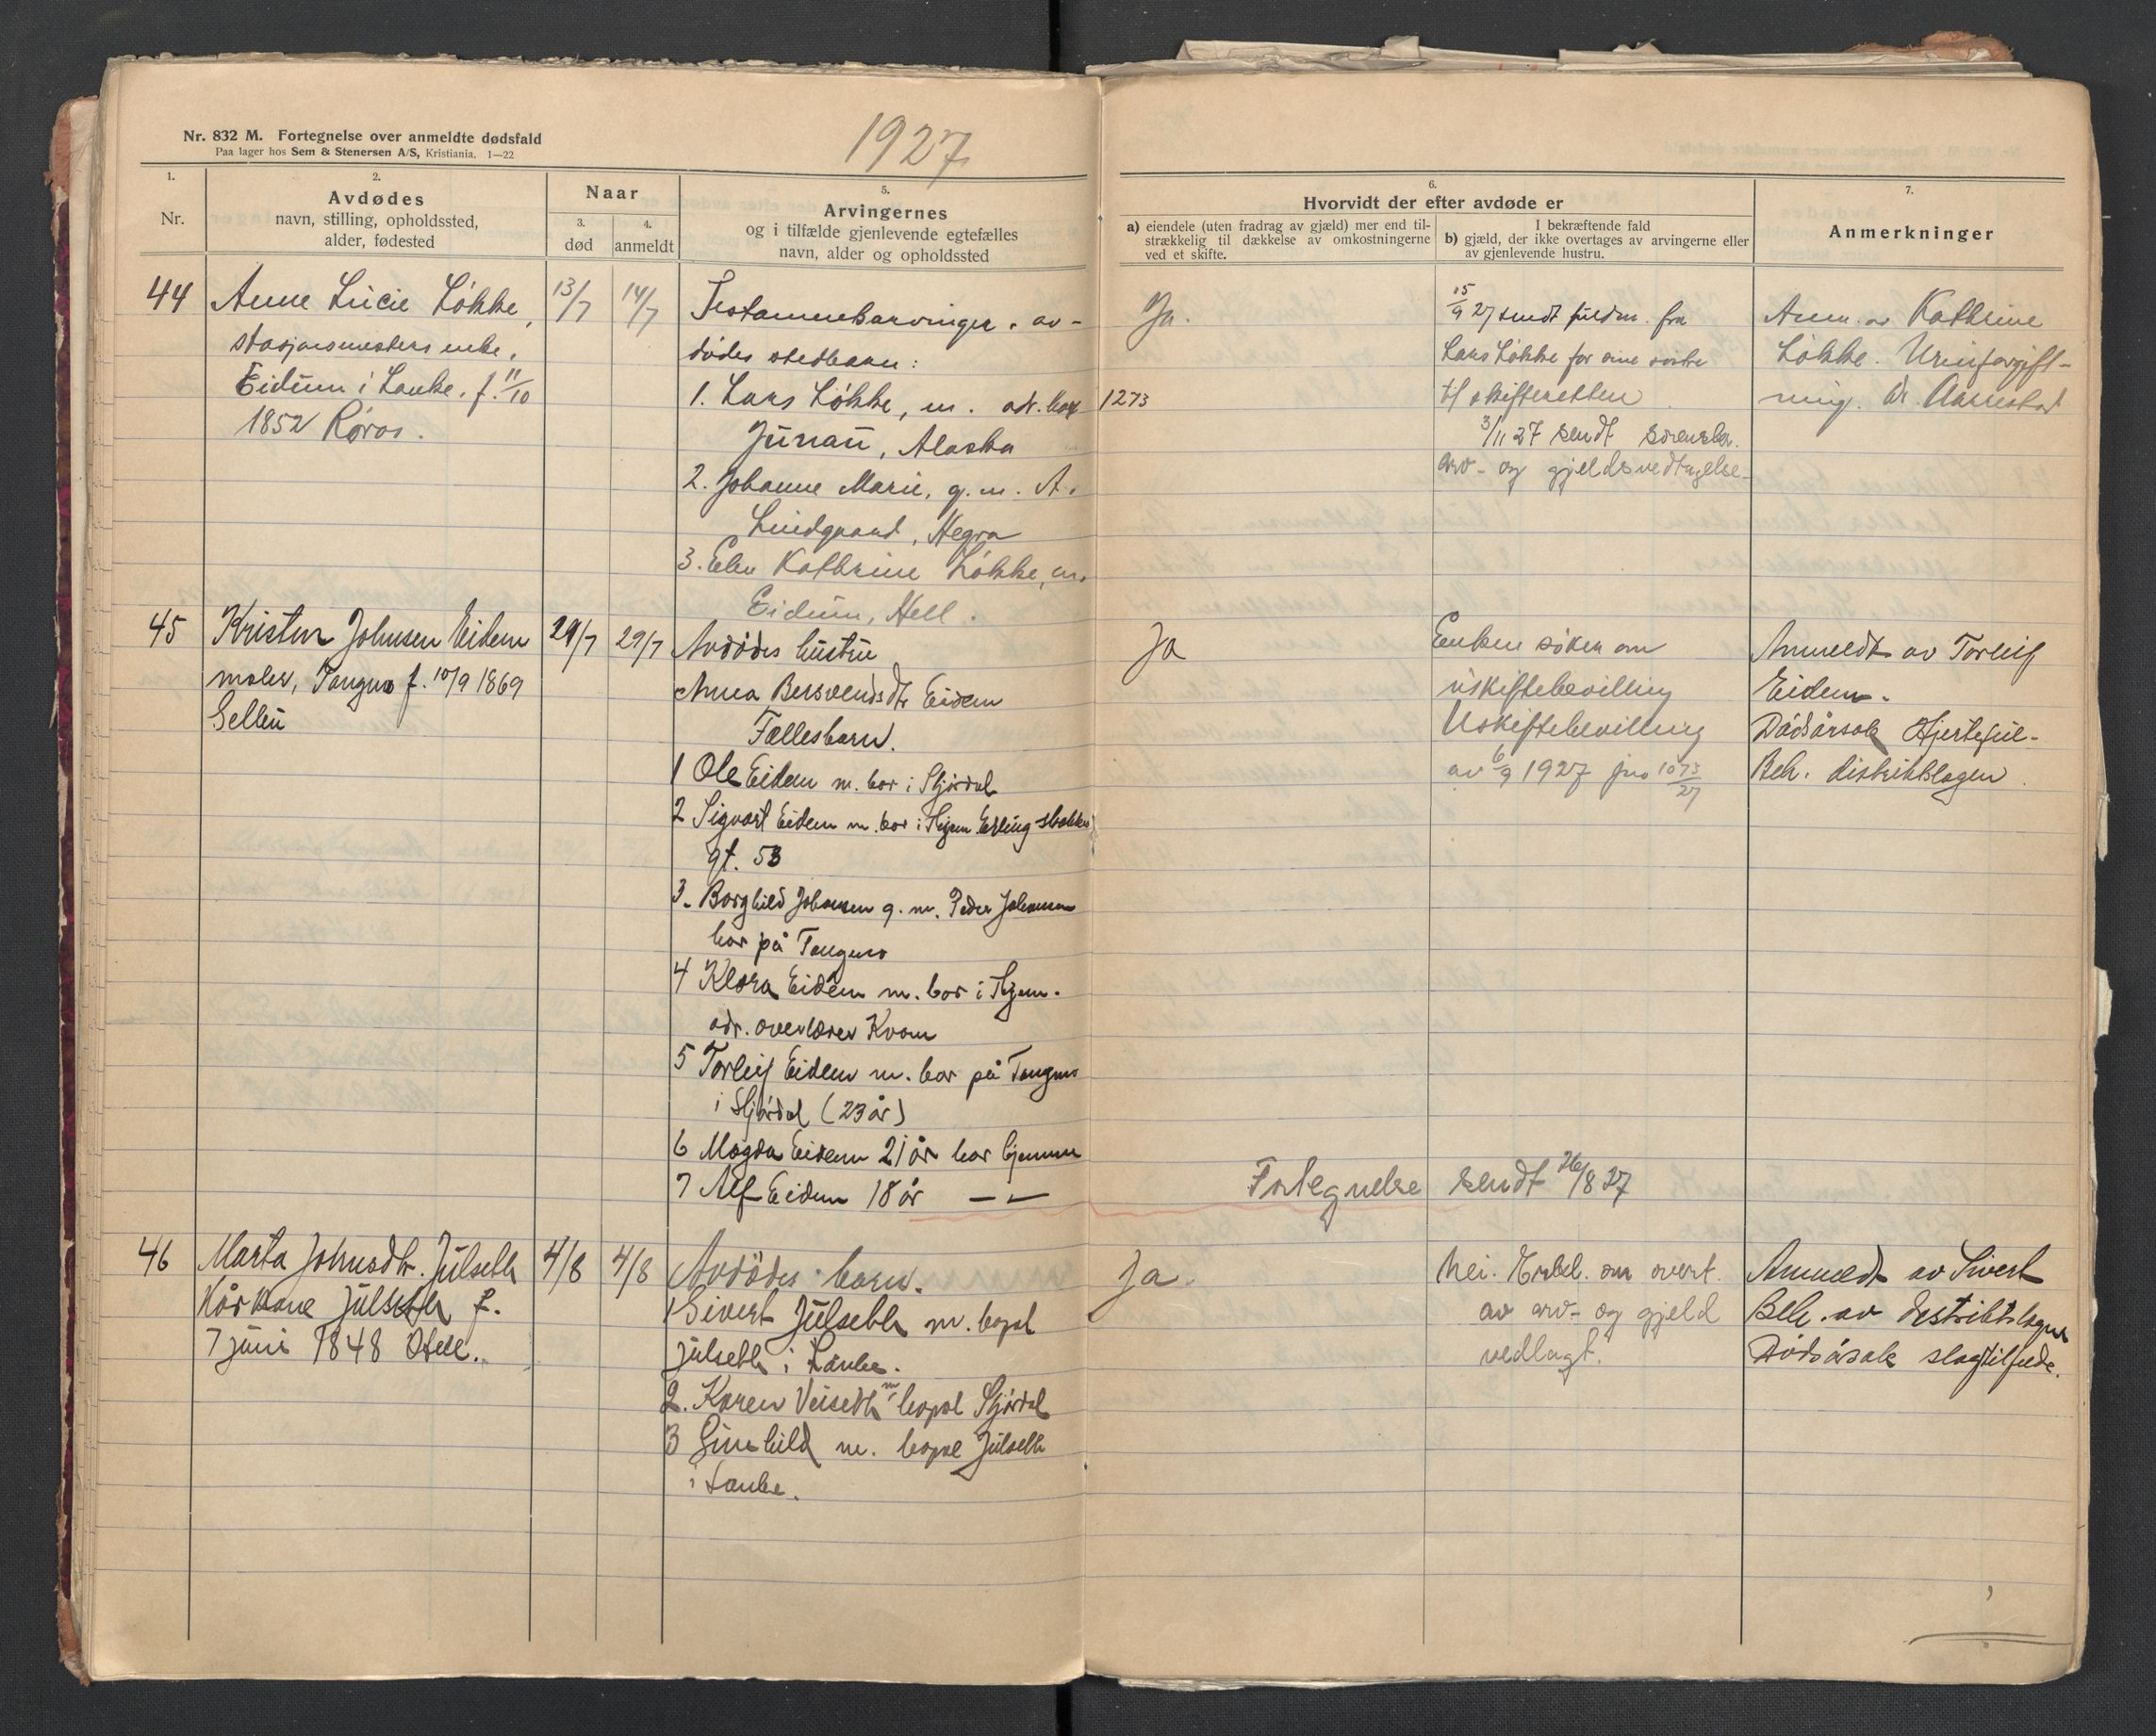 Nr. 832 M. Fortegnelse over anmeldte dødsfald
Paa lager hos Sem & Stenersen A/S, Kristiania. 1—22
1927
1.
Nr.
2.
Avdødes
navn, stilling, opholdssted,
alder, fødested
Naar
3.
død
4.
anmeldt
5.
Arvingernes
og i tilfælde gjenlevende egtefælles
navn, alder og opholdssted
6.
Hvorvidt der efter avdøde er
a) eiendele (uten fradrag av gjæld) mer end til-
strækkelig til dækkelse av omkostningerne
ved et skifte.
I bekræftende fald
b) gjæld, der ikke overtages av arvingerne eller
av gjenlevende hustru.
7.
Anmerkninger
44
Anne Lucie Løkke,
stasjonsmesters enke,
Eidum i Lånke. f. 11/10
1852 Røros.
13/7
14/7
Testamentsarvinger. av-
dødes stedbarn:
1. Lars Løkke, m. adr. box 1273
Junau, Alaska
2. Johanne Marie, g.m. A.
Lindgaard, Hegra
3. Elen Kathrine Løkke, m.
Eidum, Hell.
Ja.
15/9 27 sendt fuldm. fra
Lars Løkke for sine
til skifteretten
3/11 27 sendt sorenskr.
arv- og gjeldsvedtagelse
Anm. av Kathrine
Løkke. Urinforgift-
ning. Dr.
45
Kristen Johnsen Eidem
maler, Tangmo f. 10/9 1869
Selbu
29/7
29/7
Avdødes hustru
Anna Bersvendsdtr Eidem
Fællesbarn.
1 Ole Eidem m. bor i Stjørdal
2 Sigvart Eidem m. bor i Thjem Erling Skakkes
gt. 53
3. Borghild Johansen g. m. Peder Johansen
bor på Tangmo
4 Klara Eidem m. bor i Thjem.
adr. overlærer Kvam
5 Torleif Eidem m. bor på Tangmo
i Stjørdal (23 år)
6 Magda Eidem 21 år bor hjemme
7 Alf Eidem 18 år — " —
Ja
Enken søker om
uskiftebevilling
Uskiftebevilling
av 6/9 1927 jno 1073/27
Fortegnelse sendt 26/8 27
Anmeldt av Torleif
Eidem.
Dødsårsak Hjertefeil-
Beh. distriktslægen.
46
Marta Johnsdtr. Julseth
Kårkone Julseth f.
7 juni 1848
4/8
4/8
Avdødes barn.
1 Sivert Julseth m. bopæl
Julseth i Lånke.
2. Karen Veiseth m bopæl Stjørdal
3 Gunhild m. bopæl Julseth
i Lånke.
Ja.
Nei. Erkl. om overt.
av arv- og gjeld
vedlagt.
Anmeldt av Sivert
Beh. av distriktslægen
Dødsårsak slagtilfælde.